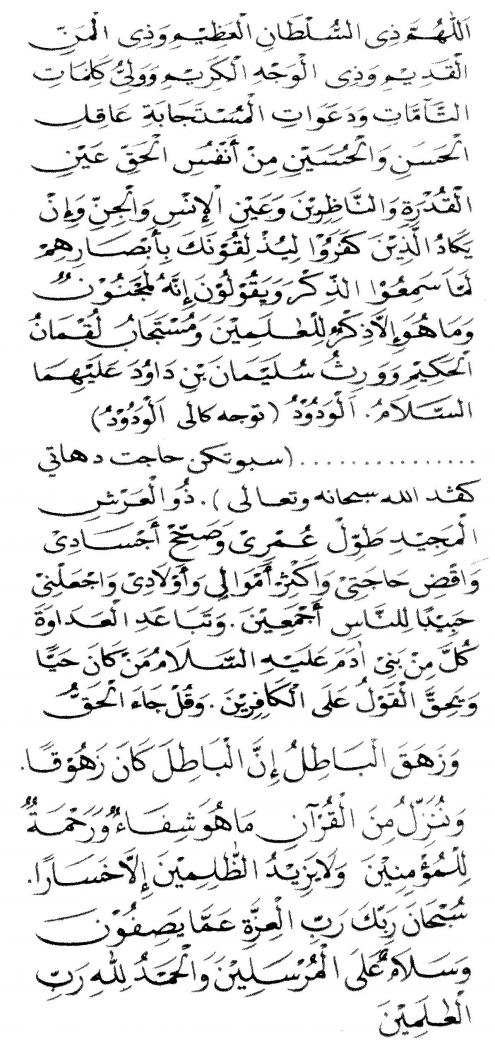 اَللّٰهُمَّ ذِى السُّلْطَانِ الْعَظِيْمِ وَذِى الْمَنِّ
الْقَدِيْمِ وَذِى الْوَجْهِ الْكَرِيْمِ وَوَلِيُّ كَلِمَاتِ
التَّآمَّاتِ وَدَعَوَاتِ الْمُسْتَجَابَةِ عَاقِلِ
الْحَسَنِ وَالْحُسَيْنِ مِنْ أَنْفُسِ الْحَقِّ عَيْنِ
الْقُدْرَةِ وَالنَّاظِرِيْنَ وَعَيْنِ الْإِنْسِ وَالْجِنِّ وَإِنْ
يَكَادُ الَّذِيْنَ كَفَرُوْا لَيُذْلِقُوْنَكَ بِأَبْصَارِهِمْ
لَمَّا سَمِعُوْا الذِّكْرَ وَيَقُوْلُوْنَ إِنَّهُ لَمَجْنُوْنٌ
وَمَا هُوَ إِلَّا ذِكْرٌ لِلْعٰلَمِيْنَ وَمُسْتَجَابُ لُقْمَانَ
الْحَكِيْمِ وَوَرِثَ سُلَيْمَانَ بْنِ دَاوُدَ عَلَيْهِمَا
السَّلَامُ. اَلْوَدُوْدُ (توجه كالى اَلْوَدُوْدُ)
............... (سبوتكن حاجت دهاتي
كفد الله سبحانه وتعالى). ذُو الْعَرْشِ
الْمَجِيْدِ طَوِّلْ عُمْرِىْ وَصَحِّحْ أَجْسَادِىْ
وَاقْضِ حَاجَتِىْ وَاكْثِرْ أَمْوَالِى وَأَوْلَادِىْ وَاجْعَلْنِىْ
حَبِيْبًا لِلنَّاسِ أَجْمَعِيْنَ. وَتَبَاعَدِ الْعَدَاوَةَ
كُلَّ مِنْ بَنِىْ اٰدَمَ عَلَيْهِ السَّلَامُ مَنْ كَانَ حَيًّا
وَيَحِقَّ الْقَوْلُ عَلَى الْكَافِرِيْنَ. وَقُلْ جَاءَ الْحَقُّ
وَزَهَقَ الْبَاطِلُ إِنَّ الْبَاطِلَ كَانَ زَهُوْقًا.
وَنُنَزِّلُ مِنَ الْقُرْآنِ مَا هُوَ شِفَاءٌ وَرَحْمَةٌ
لِلْمُؤْمِنِيْنَ وَلَا يَزِيْدُ الظّٰلِمِيْنَ إِلَّا خَسَارًا.
سُبْحَانَ رَبِّكَ رَبِّ الْعِزَّةِ عَمَّا يَصِفُوْنَ
وَسَلَامٌ عَلَى الْمُرْسَلِيْنَ وَالْحَمْدُ لِلّٰهِ رَبِّ
الْعٰلَمِيْنَ